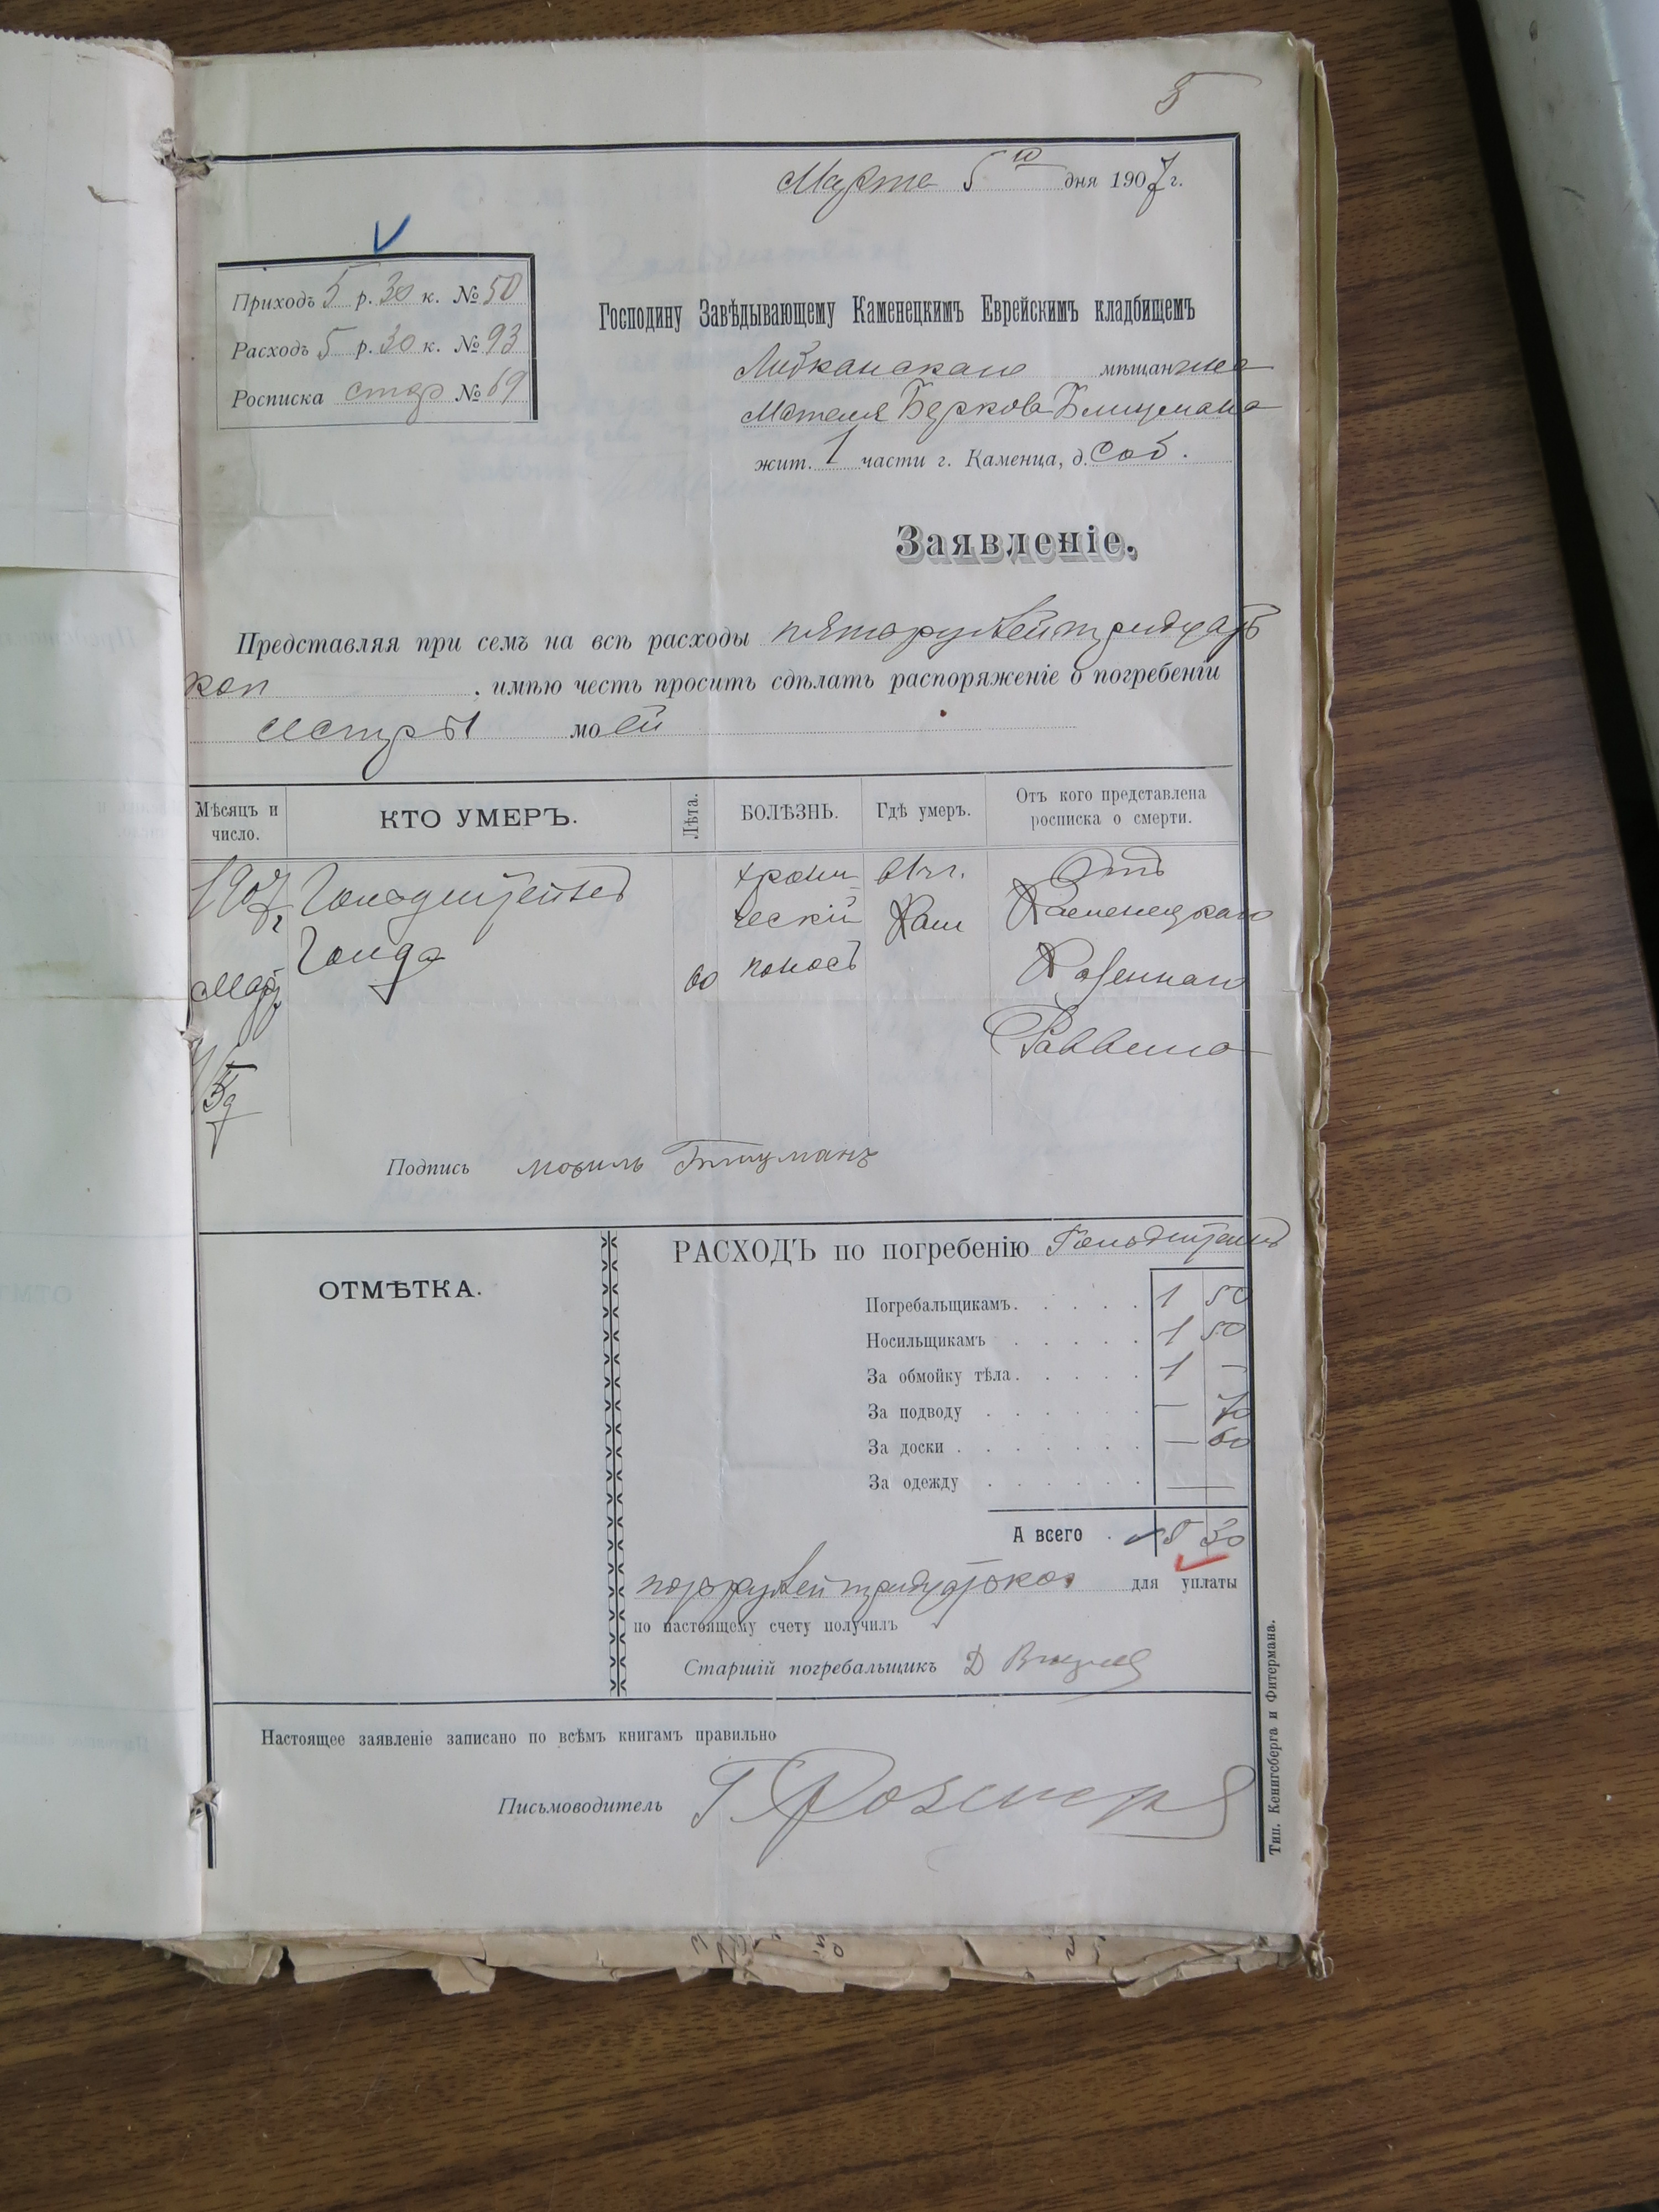 5
Марта 5го дня 1907 г.
Приходъ 5 р. 30 к. № 50
Расходъ 5 р. 30 к. № 93
Росписка стар № 69
Господину Завѣдывающему Каменецкимъ Еврейскимъ кладбищемъ
Либканскаго мѣщанина
Мотеля Беркова Блицмана
жит. 1 части г. Каменца, д. Соб.
Заявленіе.
Представляя при семъ на всѣ расходы пять рублей тридцать
коп , имѣю честь просить сдѣлать распоряженіе о погребеніи
сестры моей
Мѣсяцъ и число.
КТО УМЕРЪ.
Лѣта.
БОЛѢЗНЬ.
Гдѣ умеръ.
Отъ кого представлена росписка о смерти.
1907 г. Гольдштейнъ хрони- въ г. Отъ
Голда ческій Кам Каменецкаго
Мар 60 поносъ Казеннаго
Раввина
Подпись Мотель Блицманъ
ОТМѢТКА.
РАСХОДЪ по погребенію Гольдштейнъ
Погребальщикамъ. 1 50
Носильщикамъ 1 50
За обмойку тѣла. 1 —
За подводу — 70
За доски — 60
За одежду —
А всего 5 30
пять рублей тридцать коп. для уплаты
по настоящему счету получилъ
Старшій погребальщикъ Д
Настоящее заявленіе записано по всѣмъ книгамъ правильно
Письмоводитель Г.
Тип. Кенигсберга и Фитермана.